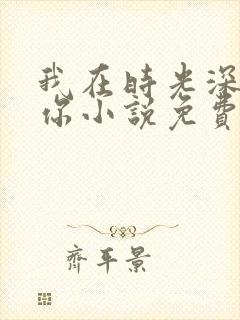 我在時光深
你小說免費
齊平景